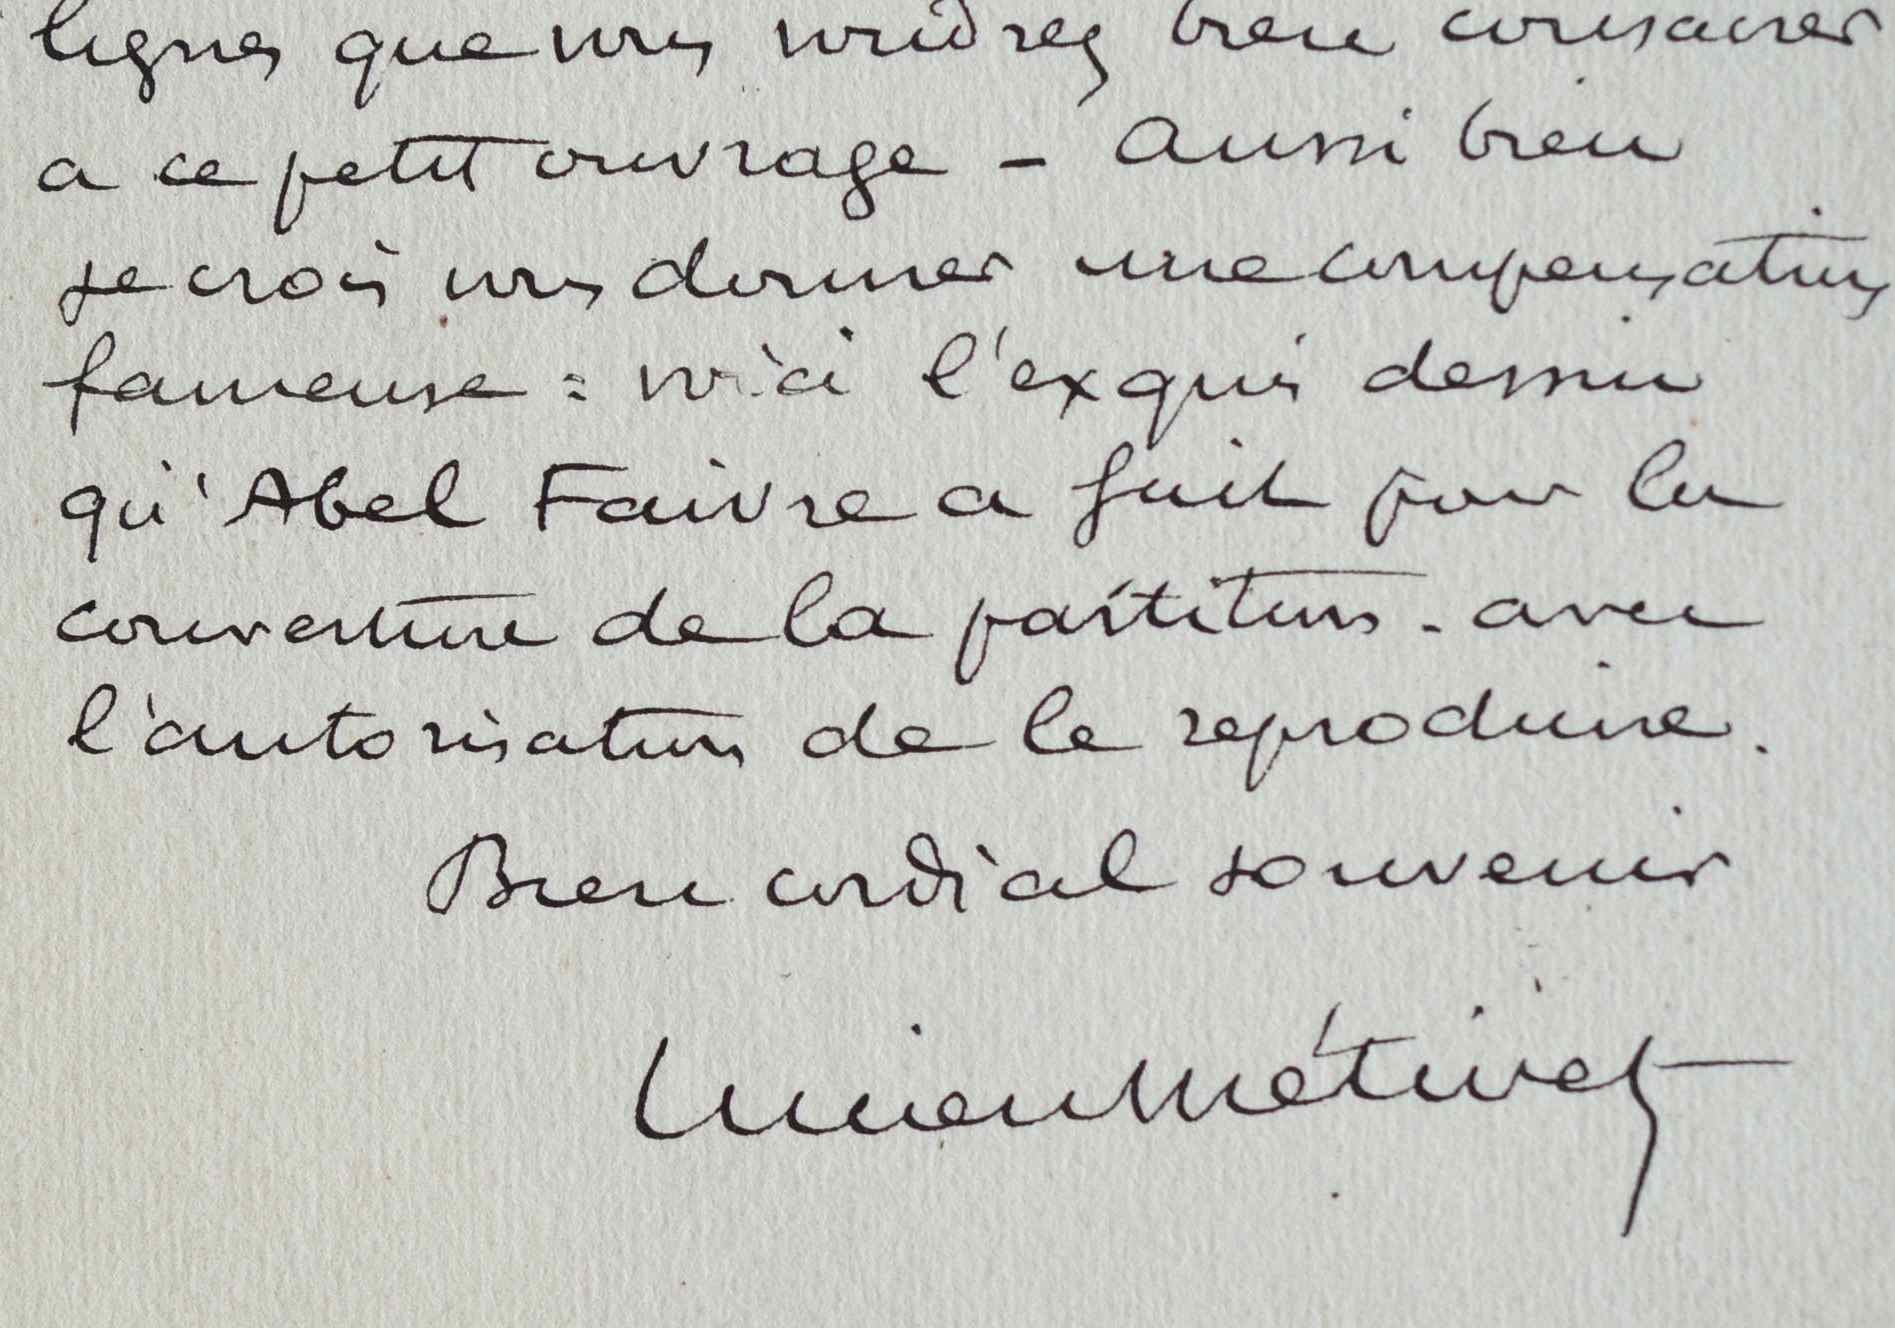 lignes que vous voudrez bien consacrer
a ce petit ouvrage - Aussi bien
je crois vous donner une compensation
fameuse : voici l'exquis dessin
qu'Abel Faivre a fait pour la
couverture de la partition - avec
l'autorisation de le reproduire.
Bien cordial souvenir
Lucien Métivet